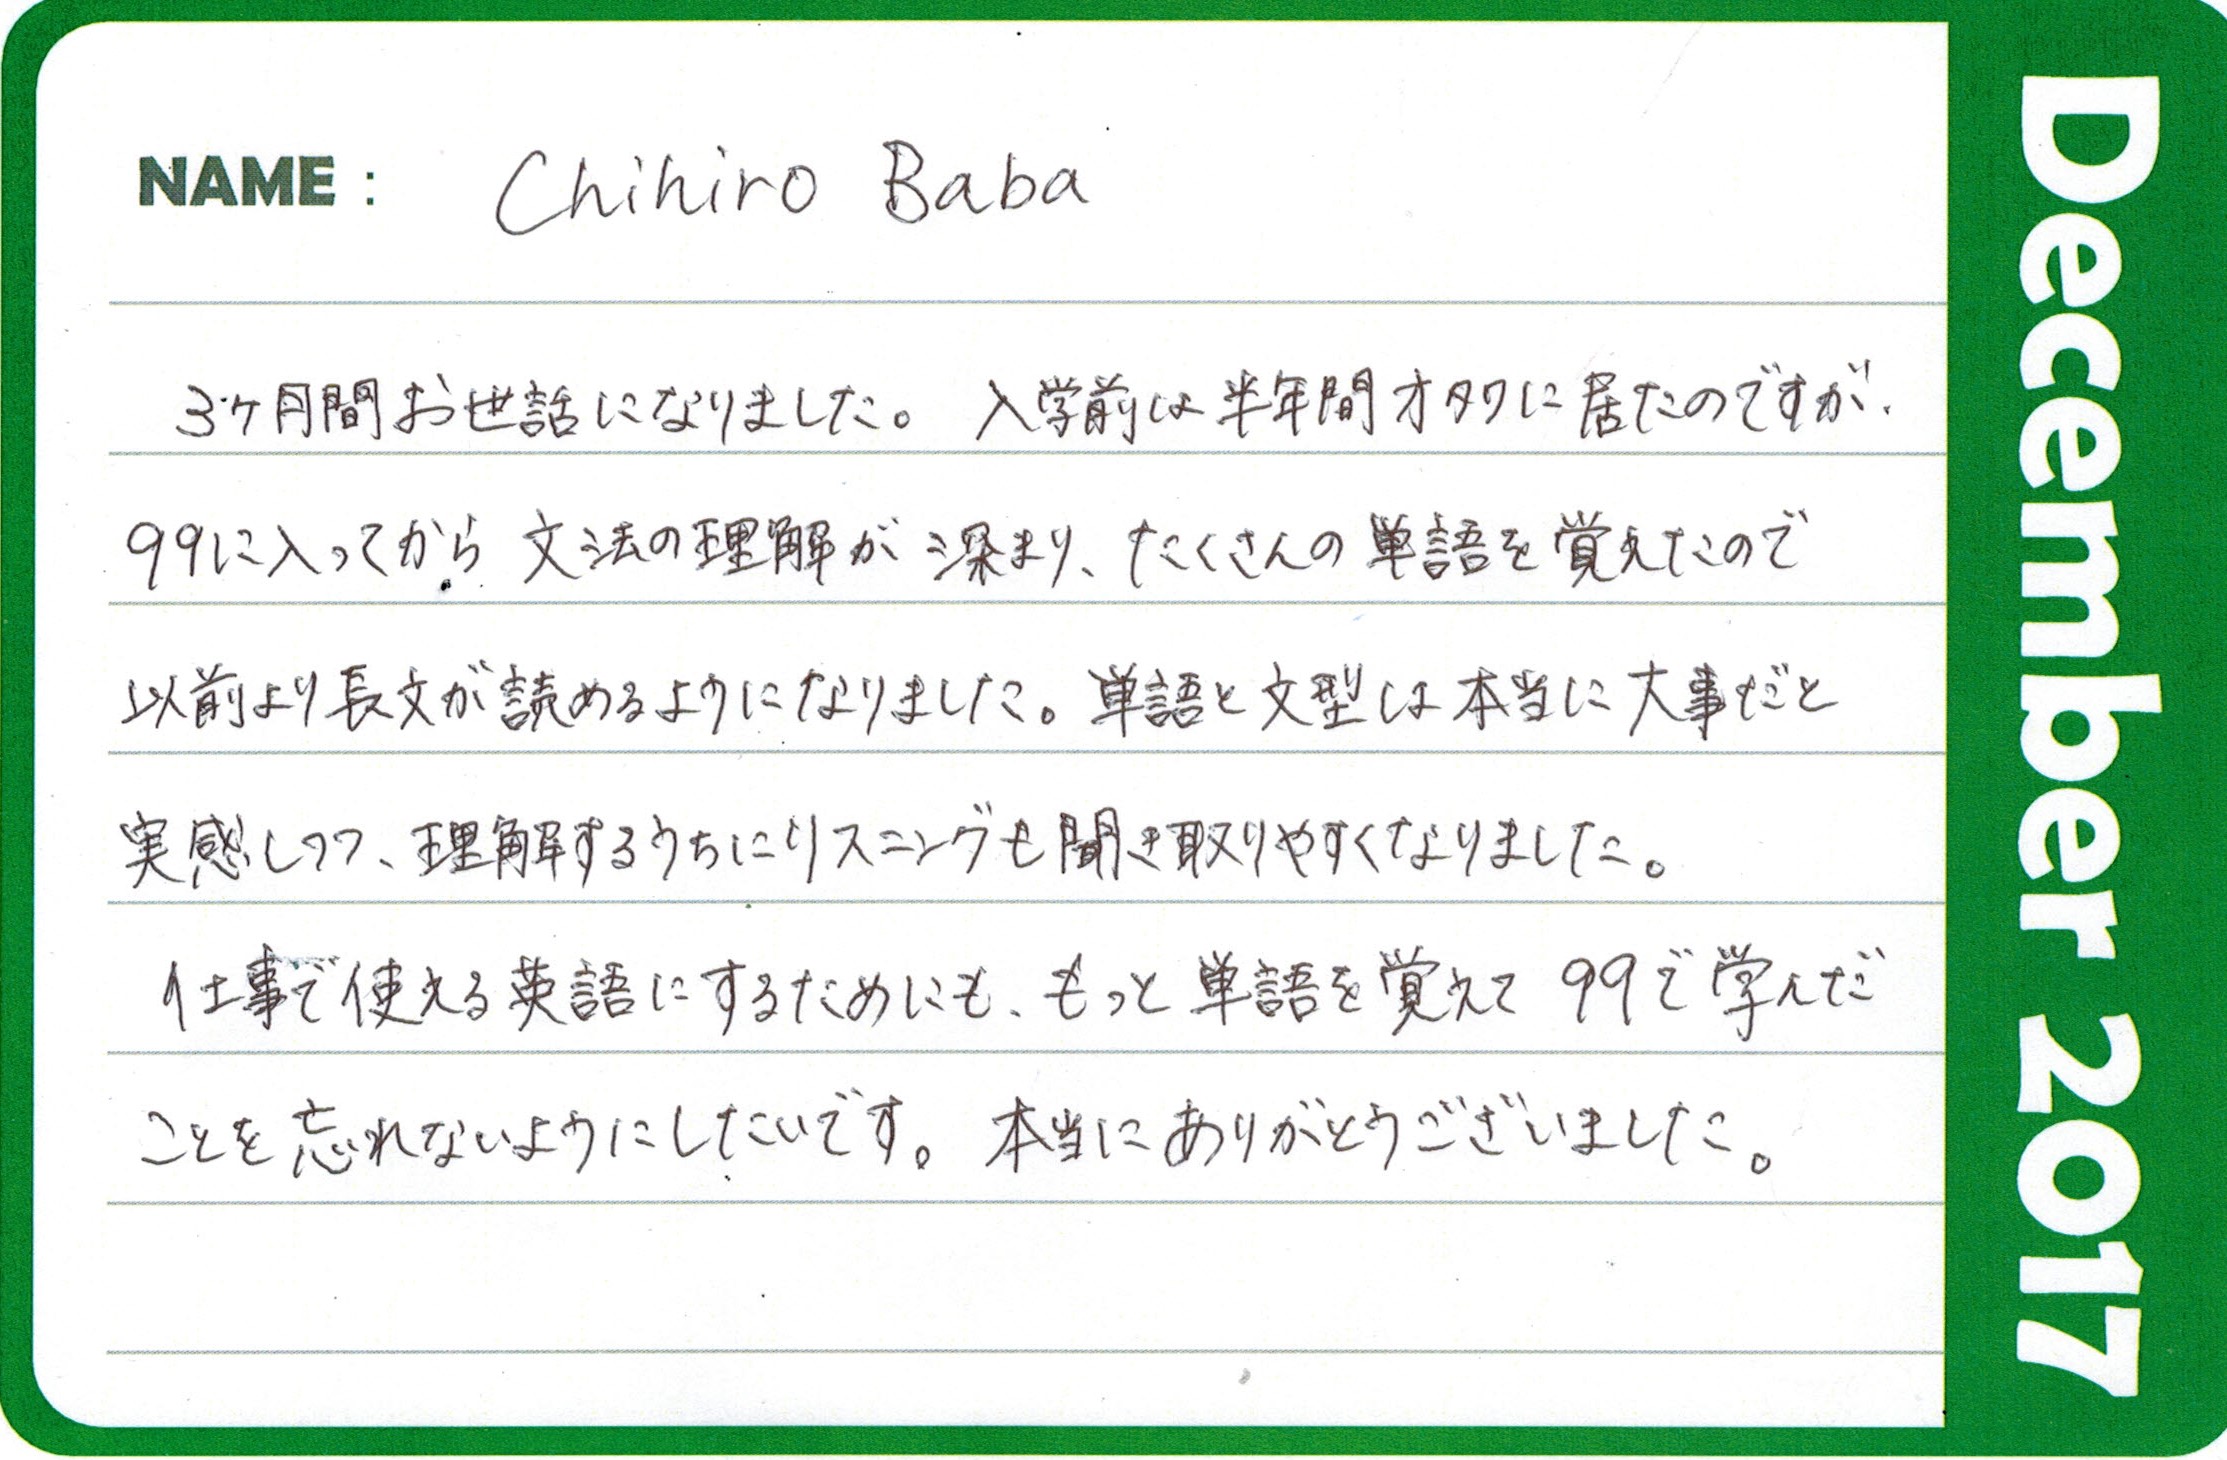 NAME : Chihiro Baba
3ヶ月間お世話になりました。 入学前は半年間オタワに居たのですが、
99に入ってから文法の理解が深まり、たくさんの単語を覚えたので
以前より長文が読めるようになりました。単語と文型は本当に大事だと
実感しつつ、理解するうちにリスニングも聞き取りやすくなりました。
仕事で使える英語にするためにも、もっと単語を覚えて99で学んだ
ことを忘れないようにしたいです。 本当にありがとうございました。
December 2017